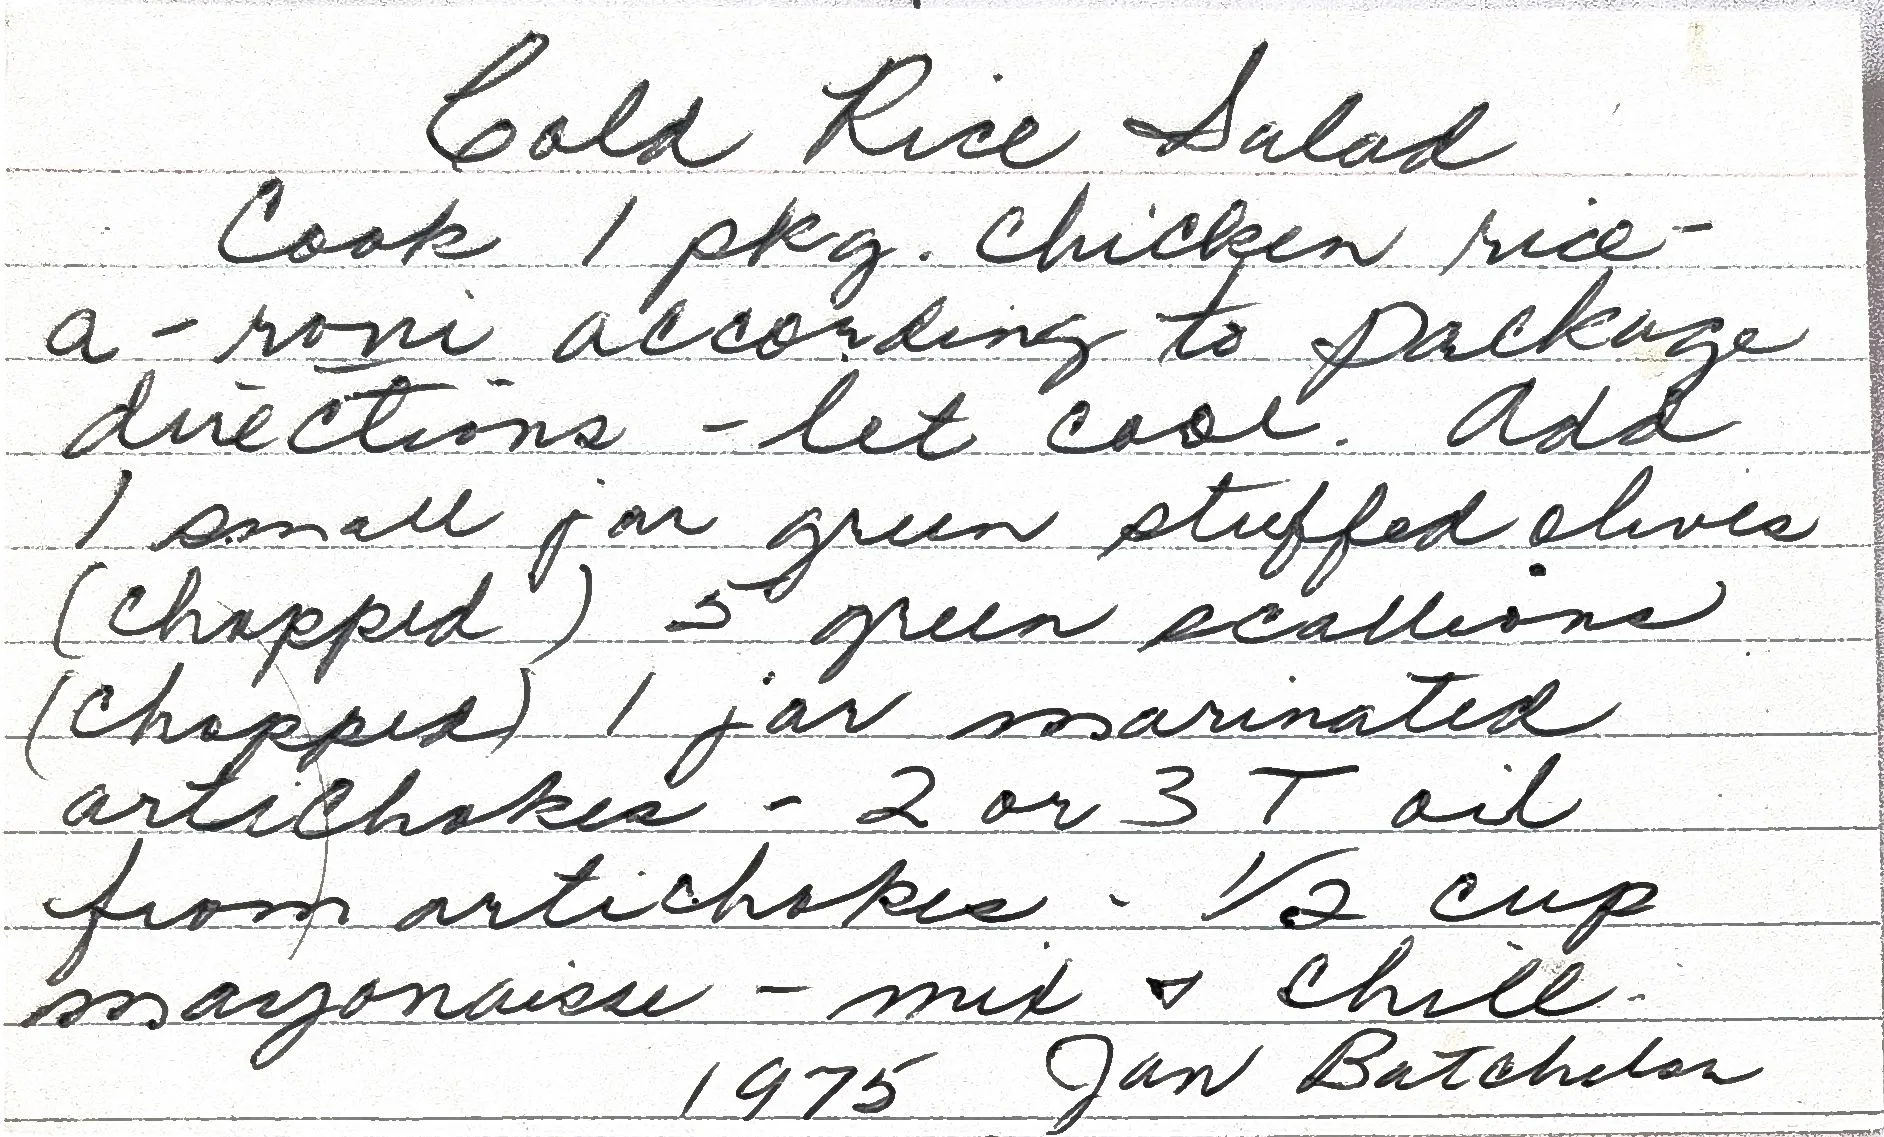 Cold Rice Salad
Cook 1 pkg. chicken rice-
a-roni according to package
directions - let cool. Add
1 small jar green stuffed olives
(chopped) 5 green scallions
(chopped) 1 jar marinated
artichokes - 2 or 3 T oil
from artichokes - 1/2 cup
mayonaisse - mix & chill.
1975 Jan Batchelor